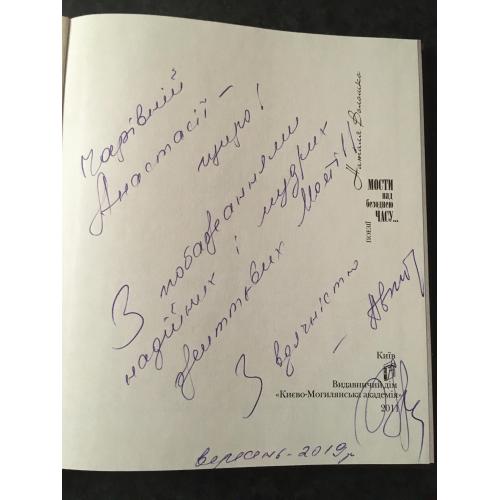 Чарівній
Анастасії –
щиро!
З побажаннями
надійних і мудрих
життєвих Мостів!!
З вдячністю
– Автор
вересень-2019р
Наталія Волошка
МОСТИ
над
безоднею
ЧАСУ...
ПОЕЗІЇ
Київ
Видавничий дім
«Києво-Могилянська академія»
2011